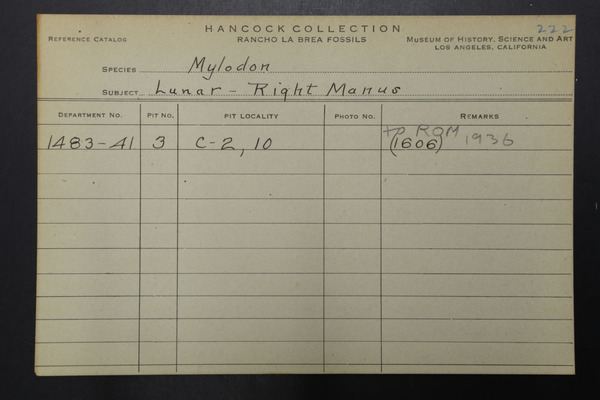 HANCOCK COLLECTION 222
REFERENCE CATALOG RANCHO LA BREA FOSSILS MUSEUM OF HISTORY, SCIENCE AND ART
LOS ANGELES, CALIFORNIA
SPECIES Mylodon
SUBJECT Lunar - Right Manus
DEPARTMENT NO. PIT NO. PIT LOCALITY PHOTO NO. REMARKS
to ROM 1936
1483-41 3 C-2, 10 (1606)